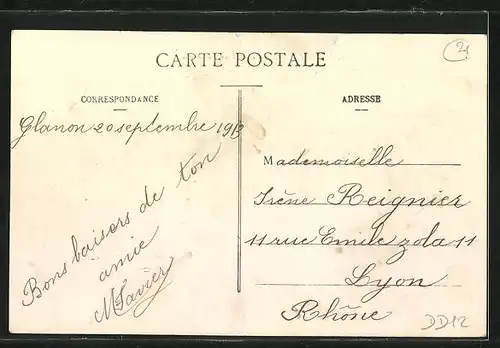 CARTE POSTALE
CORRESPONDANCE
ADRESSE
Glanon 20 septembre 1913
Bons baisers de ton
amie
Mademoiselle
Irène Reignier
11 rue Emile zola 11
Lyon
Rhône
DD12